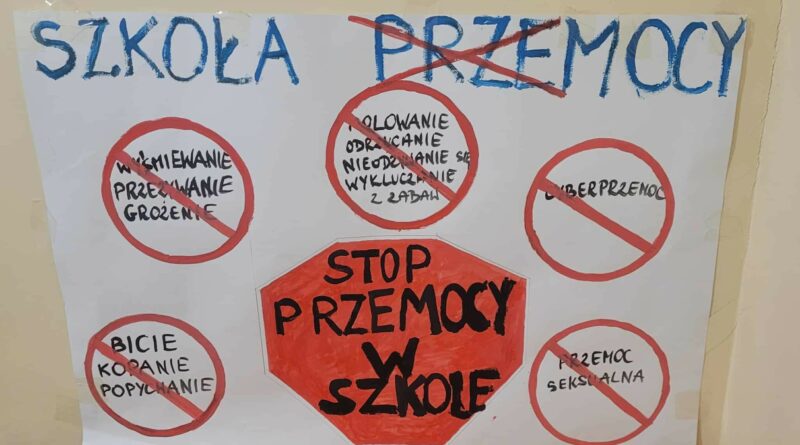 SZKOŁA PRZEMOCY
WYŚMIEWANIE
PRZEZYWANIE
GROŻENIE
IZOLOWANIE
ODRZUCANIE
NIEODZYWANIE SIĘ
WYKLUCZANIE
Z ZABAW
CYBERPRZEMOC
STOP
PRZEMOCY
W
SZKOLE
BICIE
KOPANIE
POPYCHANIE
PRZEMOC
SEKSUALNA